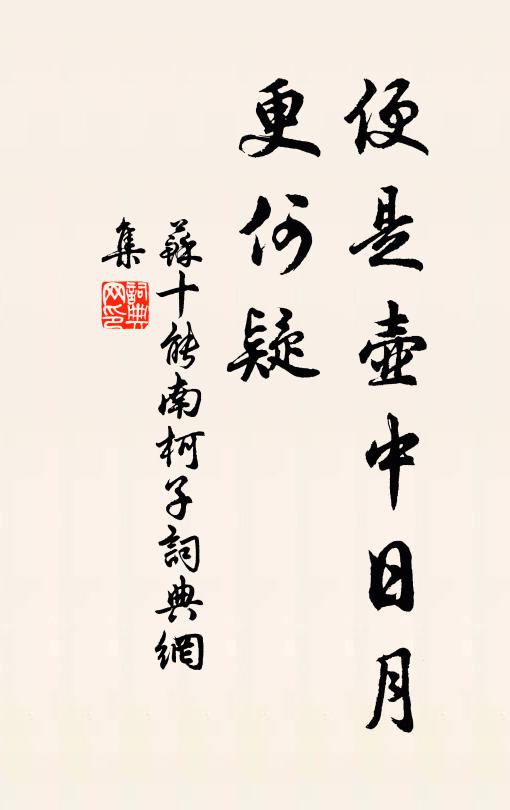 便是壺中日月
更何疑
蘇十能南柯子詞典網
集
詞典
网印